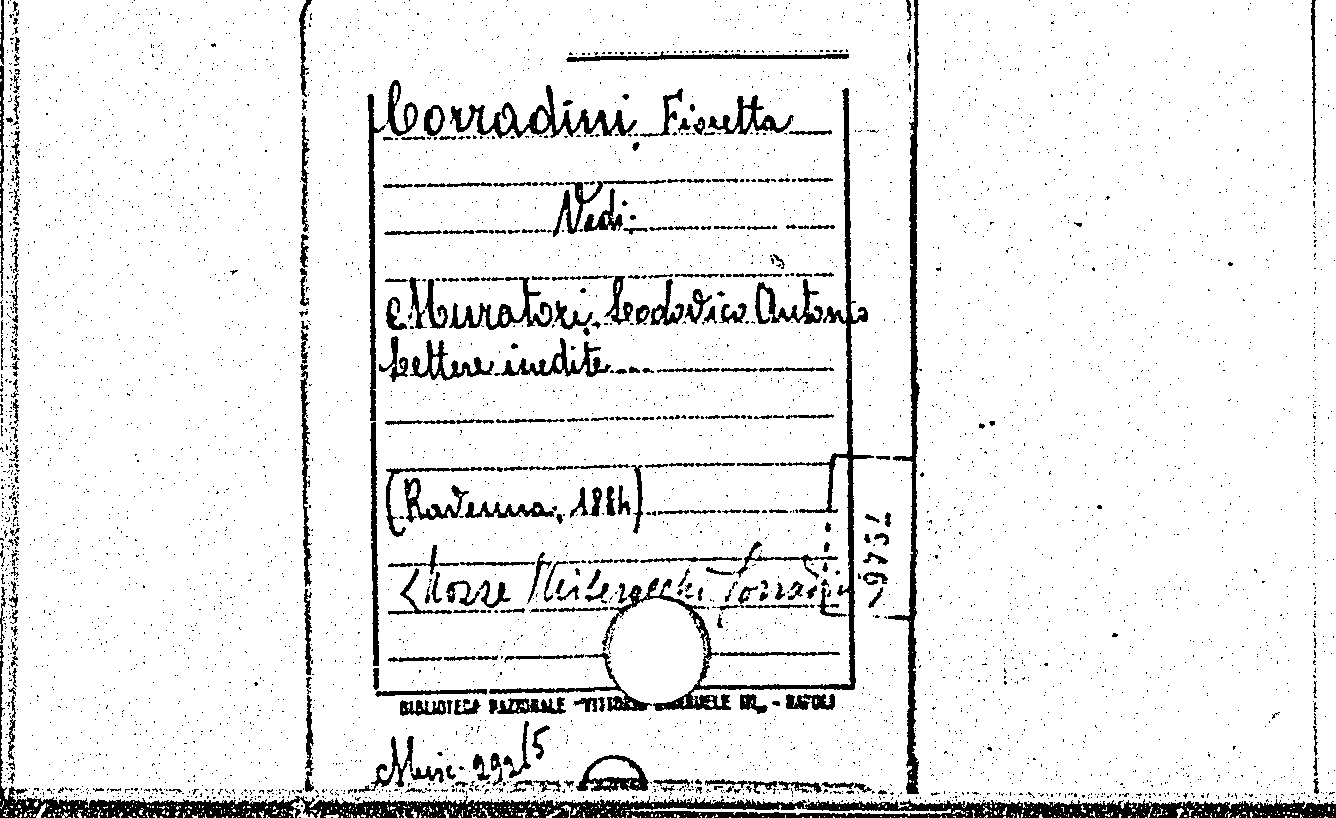 Corradini, Fioretta
Vedi:
Muratori, Lodovico Antonio
Lettere inedite....
(Ravenna, 1884)
Nozze Miserocchi Corradini
BIBLIOTECA NAZIONALE "VITTORIO EMANUELE III„ - NAPOLI
Misc. 292/5